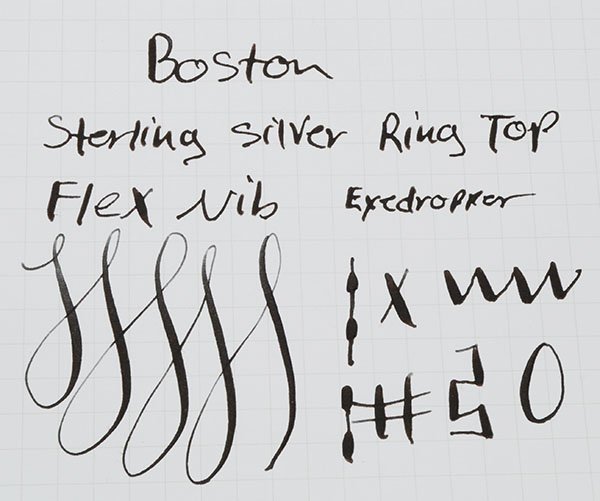 Boston
Sterling silver Ring Top
Flex Nib Eyedropper